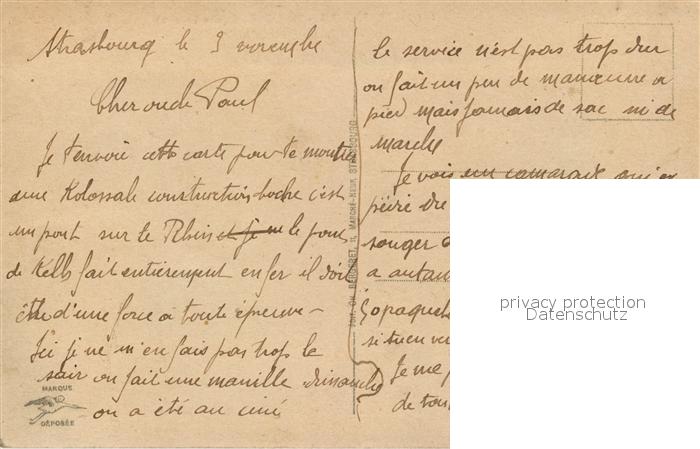 Strasbourg le 3 novembre
Cher oncle Paul
Je t'envoie cette carte pour te montrer
une Kolossale construction boche c'est
un pont sur le Rhin et je le pont
de Kelh fait entièrement en fer il doit
être d'une force à toute épreuve -
Ici je ne m'en fais pas trop le
soir on fait une manille dimanche
on a été au ciné
MARQUE
DÉPOSÉE
Édit. Ch. BERGERET, MARCHÉ-NEUF, STRASBOURG
le service n'est pas trop dur
on fait un peu de manœuvre à
pied mais jamais de sac ni de
marche
Je vois un camarade qui
songer
a autan
paquet
si tu en
Je me
de tou
privacy protection
Datenschutz